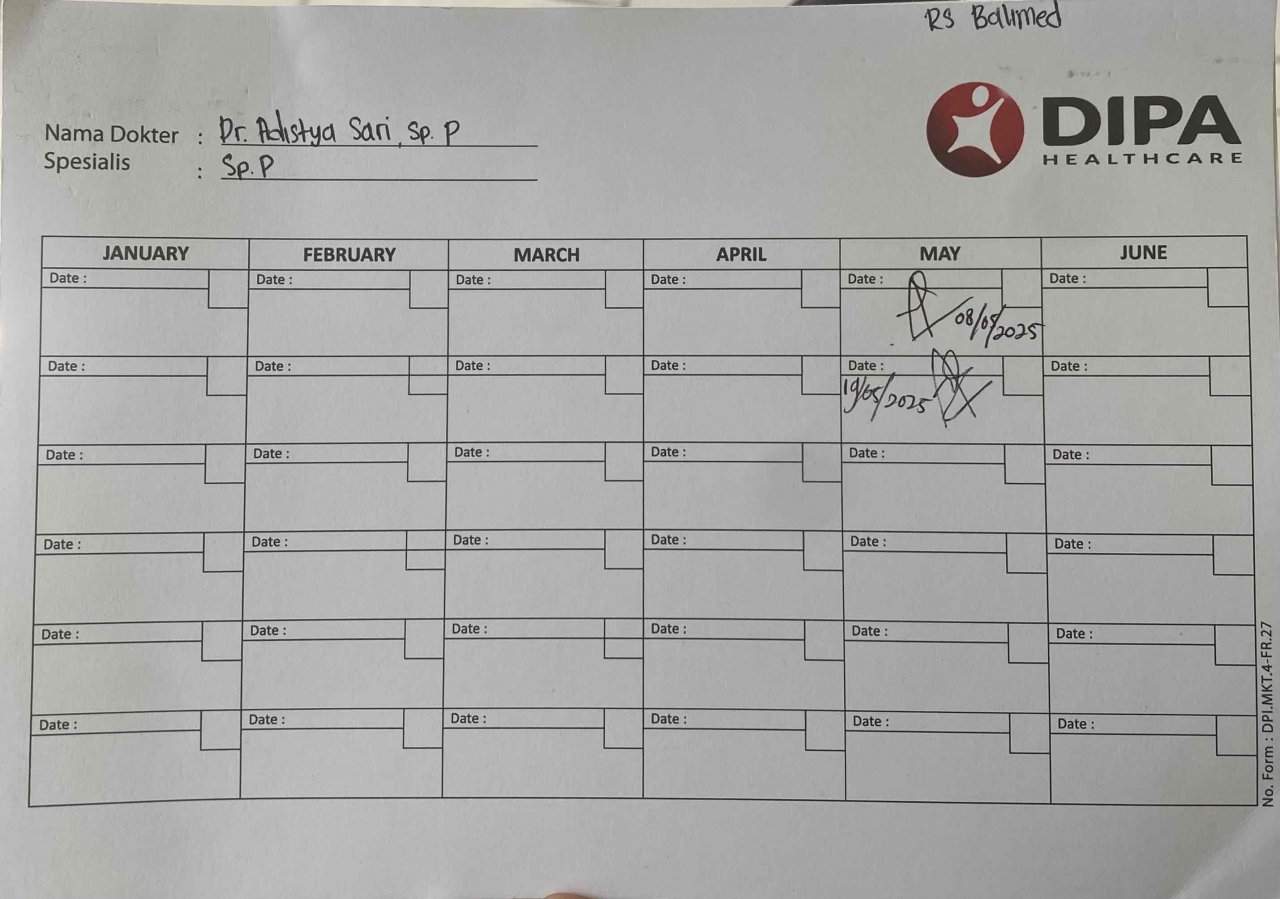 RS Balimed
DIPA
HEALTHCARE
Nama Dokter : Dr. Adistya Sari, Sp. P
Spesialis : Sp. P
JANUARY FEBRUARY MARCH APRIL MAY JUNE
Date : Date : Date : Date : Date : Date :
08/05/2025
Date : Date : Date : Date : Date : Date :
19/05/2025
Date : Date : Date : Date : Date : Date :
Date : Date : Date : Date : Date : Date :
Date : Date : Date : Date : Date : Date :
Date : Date : Date : Date : Date : Date :
No. Form : DPI.MKT.4-FR.27